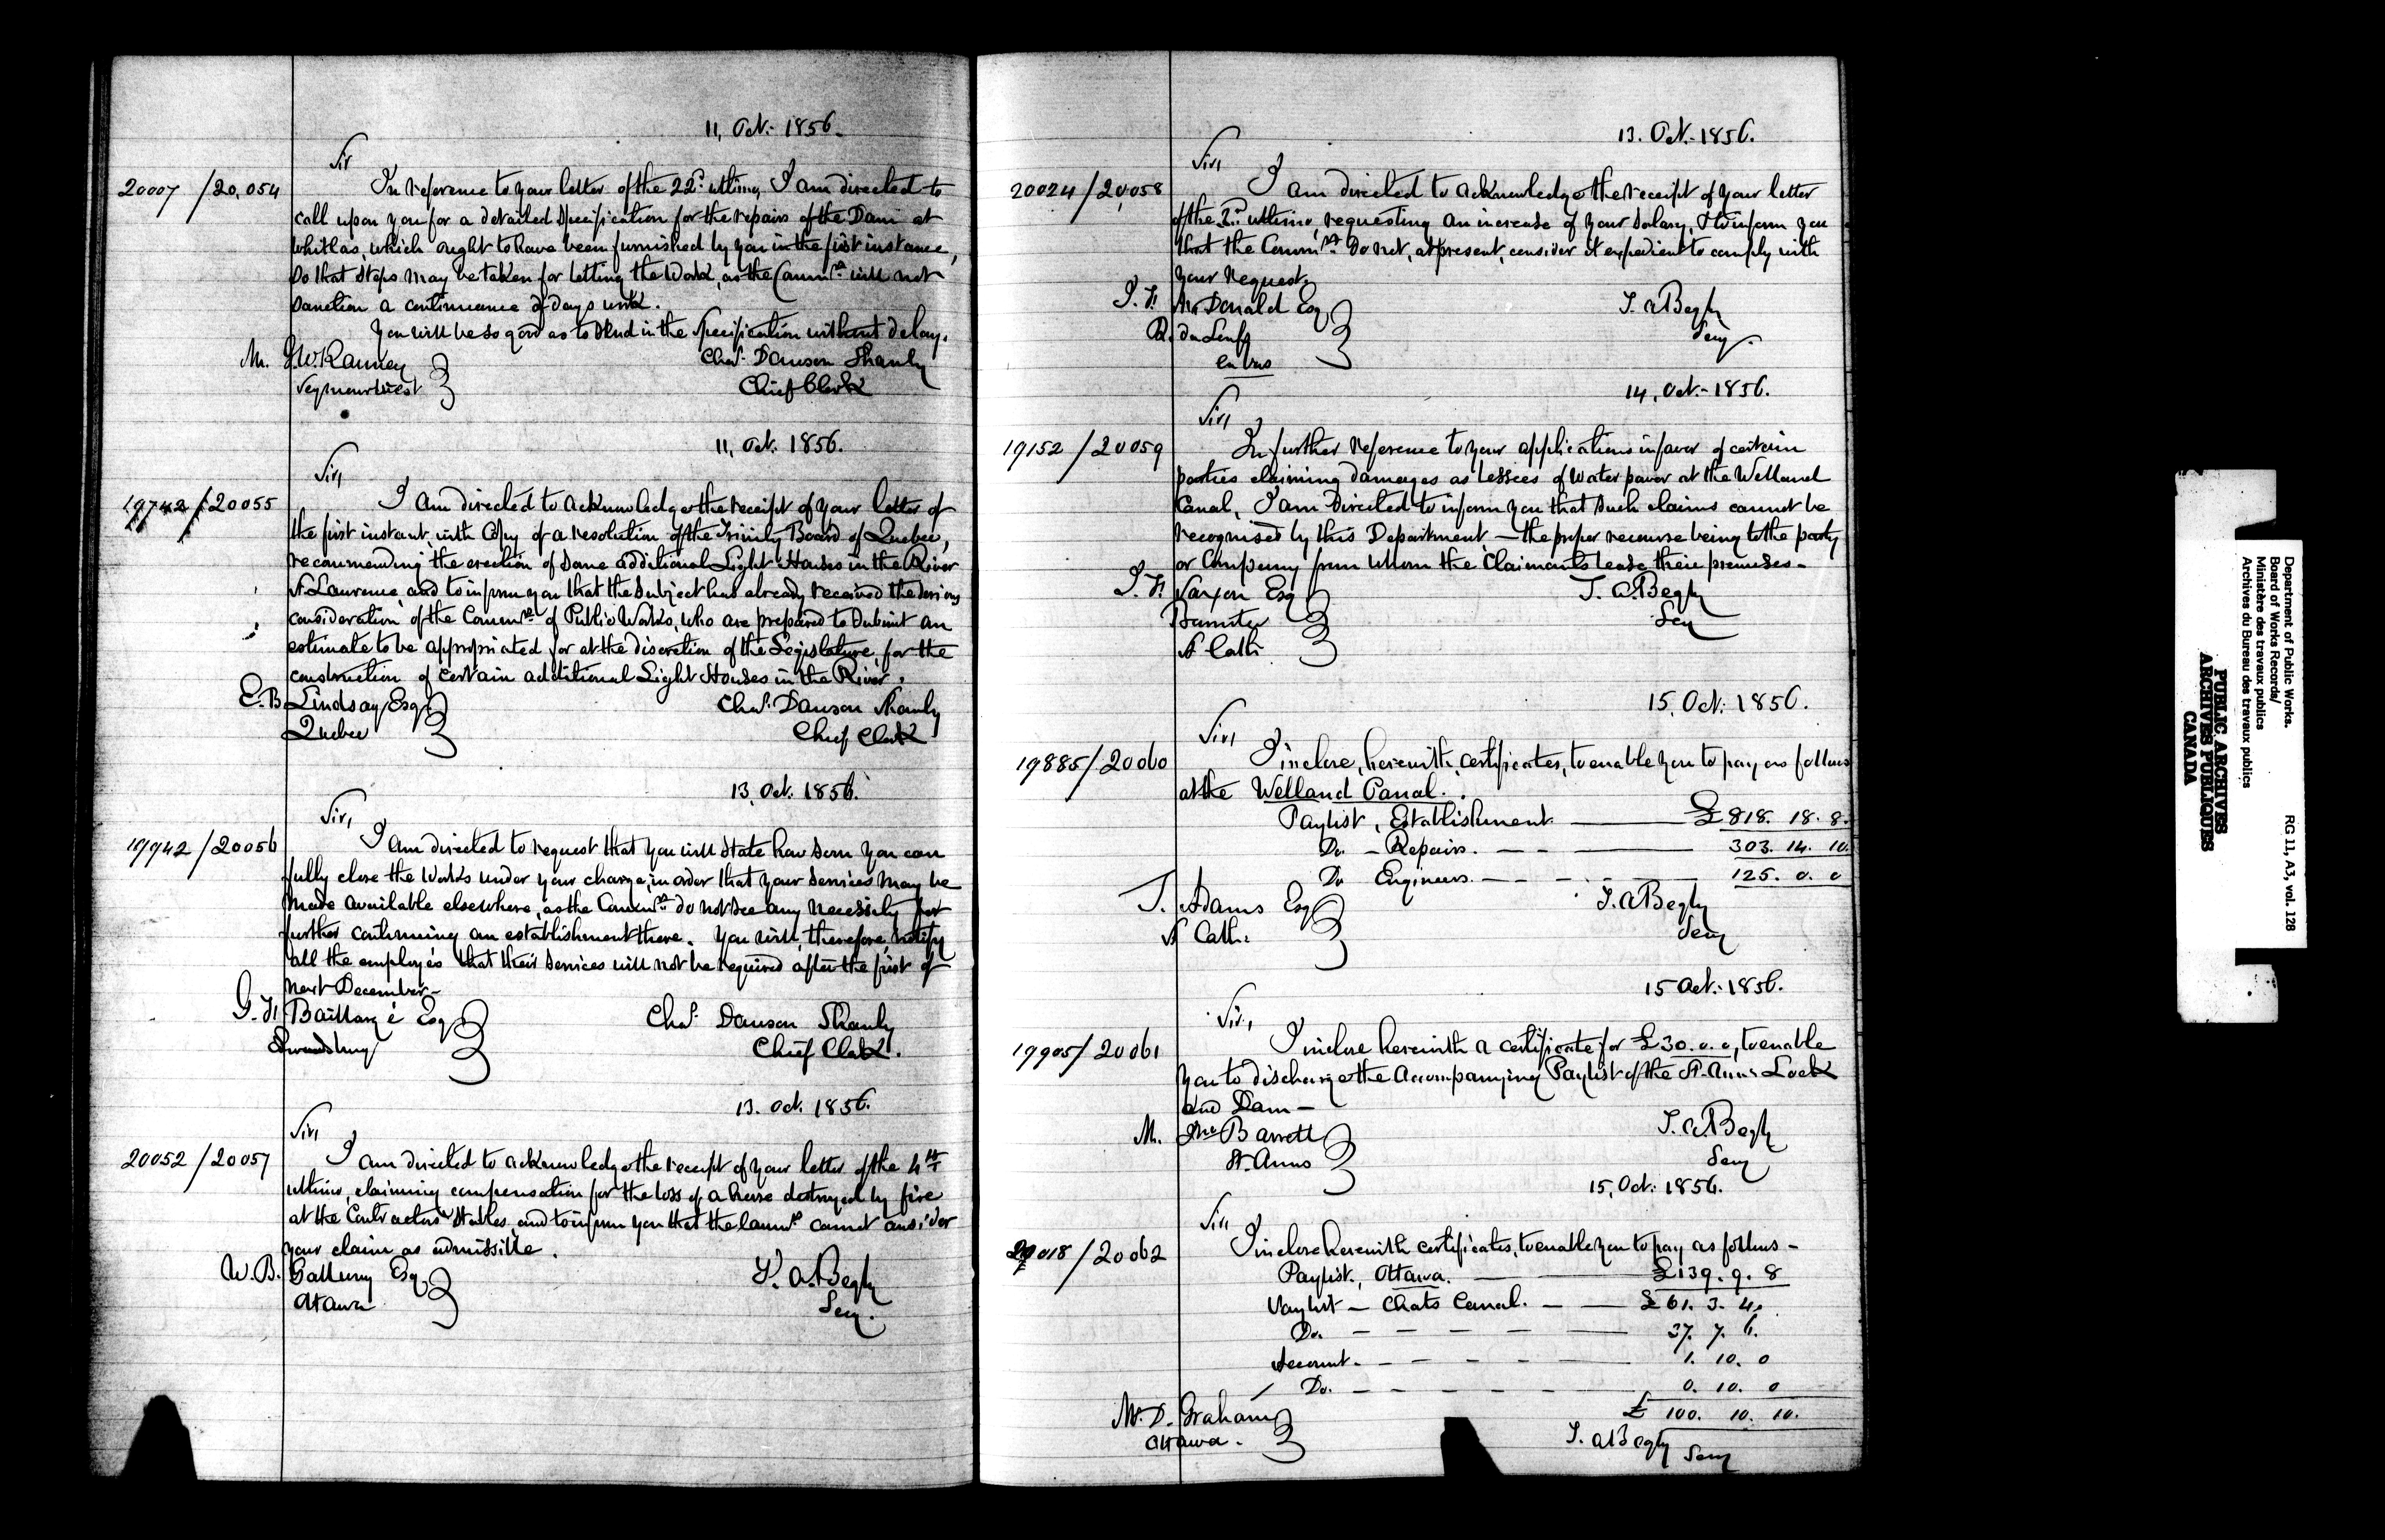 11, Oct: 1856.
Sir
20007 / 20,054
In reference to your letter of the 22d. ultimo, I am directed to
call upon you for a detailed Specification for the repairs of the Dam at
Whitlas, which ought to have been furnished by you in the first instance,
So that steps may be taken for letting the Work, as the Commrs. will not
Sanction a continuance of days work.
You will be so good as to Send in the Specification without delay.
M. G.W. Ranney
Chas. Dawson Shanly
Chief Clerk
11, Oct: 1856.
Sir,
19742 / 20055
I am directed to acknowledge the receipt of your letter of
the first instant, with Copy of a resolution of the Trinity Board of Quebec,
recommending the erection of Some additional Light Houses in the River
St Lawrence, and to inform you that the Subject has already received the Serious
consideration of the Commrs. of Public Works, who are prepared to Submit an
estimate to be appropriated for at the discretion of the Legislature, for the
construction of certain additional Light Houses in the River.
E.B. Lindsay Esq
Quebec
Chas. Dawson Shanly
Chief Clerk
13, Oct: 1856.
Sir,
19942 / 20056
I am directed to request that you will State how Soon you can
fully close the Works under your charge, in order that your Services may be
made available elsewhere, as the Commrs. do not See any necessity for
further continuing an establishment there. You will, therefore, notify
all the employés that their Services will not be required after the first of
next December-
G.F. Baillargé Esq
Chas. Dawson Shanly
Chief Clerk.
13. Oct. 1856.
Sir,
20052 / 20057
I am directed to acknowledge the receipt of your letter of the 4th
ultimo, claiming compensation for the loss of a horse destroyed by fire
at the Contractors' Stables, and to inform you that the Commrs. cannot consider
your claim as admissible.
W.B. Esq
Ottawa
T. A. Begly
Secy.
13. Oct. 1856.
Sir,
20024 / 20,058
I am directed to acknowledge the receipt of your letter
of the 2d. ultimo, requesting an increase of your Salary, & to inform you
that the Commrs. do not, at present, consider it expedient to comply with
your request.
McDonald Esq
R. du Loup
en bas
T. A Begly
Secy.
14, Oct:- 1856.
Sir,
19152 / 20059
In further reference to your applications in favor of certain
parties claiming damages as lessees of Water power at the Welland
Canal, I am Directed to inform you that Such claims cannot be
recognised by this Department — the proper recourse being to the party
or Company from whom the Claimants lease their premises-
Esq
Barrister
St Caths
T. A. Begly
Secy
15, Oct: 1856.
Sir,
19885 / 20060
I inclose, herewith, certificates, to enable you to pay as follows
at the Welland Canal.
Paylist, Establishment — £818. 18. 8.
Do. - Repairs. — 303. 14. 10.
Do Engineers. — 125. 0. 0
T. Adams Esq
St Caths.
T. A Begly
Secy
15 Oct:- 1856.
Sir,
19905 / 20061
I inclose herewith a certificate for £30. 0. 0, to enable
you to discharge the accompanying Paylist of the St. Anns Lock
and Dam —
M. Jno Barrett
St. Anns
T. A. Begly
Secy
15, Oct: 1856.
Sir
/ 20062
I inclose herewith certificates, to enable you to pay as follows -
Paylist, Ottawa. — £139. 9. 8
Paylist — Chats Canal. — £61. 3. 4.
Do. — 37. 7. 6.
Account. — 1. 10. 0
Do. — 0. 10. 0
£ 100. 10. 10.
M. D. Graham
Ottawa.
T. A Begly Secy
Department of Public Works.
Board of Works Records/
Ministère des travaux publics
Archives du Bureau des travaux publics
RG 11, A3, vol. 128
PUBLIC ARCHIVES
ARCHIVES PUBLIQUES
CANADA